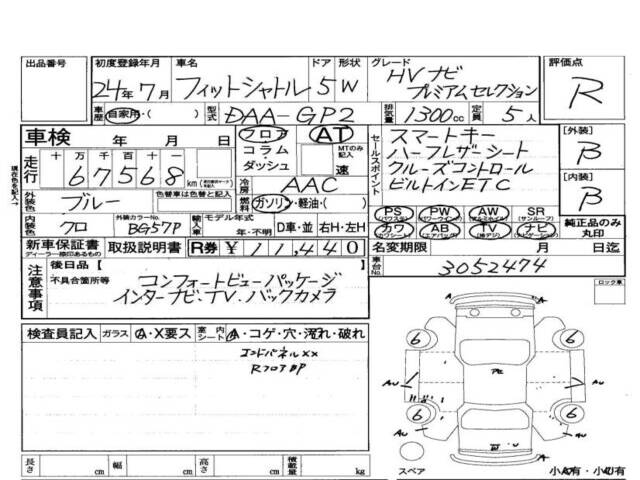 出品番号 初度登録年月 車名 ドア 形状 グレード 評価点
24年7月 フィットシャトル 5W HVナビ プレミアムセレクション R
車歴 自家用・( ) 型式 DAA-GP2 排気量 1300cc 定員 5人
車検 年 月 日 フロア AT セールスポイント スマートキー [外装]
コラム MTのみ記入 ハーフレザーシート B
走行 十 万 千 百 十 一 ダッシュ 速 クルーズコントロール
67568 km 冷房 AAC ビルトインETC [内装]
外装色 ブルー 色替車は色替と記入 燃料 ガソリン・軽油・( ) B
内装色 クロ 外装カラーNo. BG57P 輸入車 モデル年式 年・不明 D車・並 右H・左H
PS PW AW SR (サンルーフ) 純正品のみ丸印
カワ AB TV ナビ
新車保証書 ディーラー捺印あるもの 取扱説明書 R券 ¥11,440 名変期限 月 日迄
注意事項 後日品【 】 車台No. 3052474
不具合箇所等 コンフォートビューパッケージ
インターナビ・TV・バックカメラ
ロック車
検査員記入 ガラス A・X要ス 室内シート A・コゲ・穴・汚れ・破れ
エンドパネルXX
RフロアBP
A
A
6 6
AU AU
6 6
長さ cm 幅 cm 高さ cm 積載量 kg
スペア 小A有・小U有
現在色を記入→